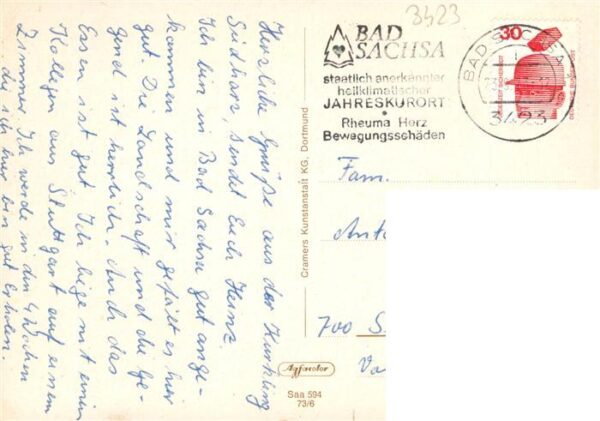 Herzliche Grüße aus der Kurklinig
Südharz, sendet Euch Heinz.
Ich bin in Bad Sachsa gut ange-
kommen und mir gefält es hier
gut. Die Landschaft und die Ge-
gend ist herrlich. Auch das
Essen ist gut. Ich liege mit einem
Kollegen aus Stuttgart auf einem
Zimmer. Ich werde in den 4 Wochen
die ich hier bin gut Erholen.
Cramers Kunstanstalt KG, Dortmund
Agfacolor
Saa 594
73/6
3423
BAD
SACHSA
staatlich anerkannter
heilklimatischer
JAHRESKURORT
Rheuma Herz
Bewegungsschäden
BAD SACHSA
3423
30
DEUTSCHE BUNDESPOST
Fam.
Anto
700 S
Va